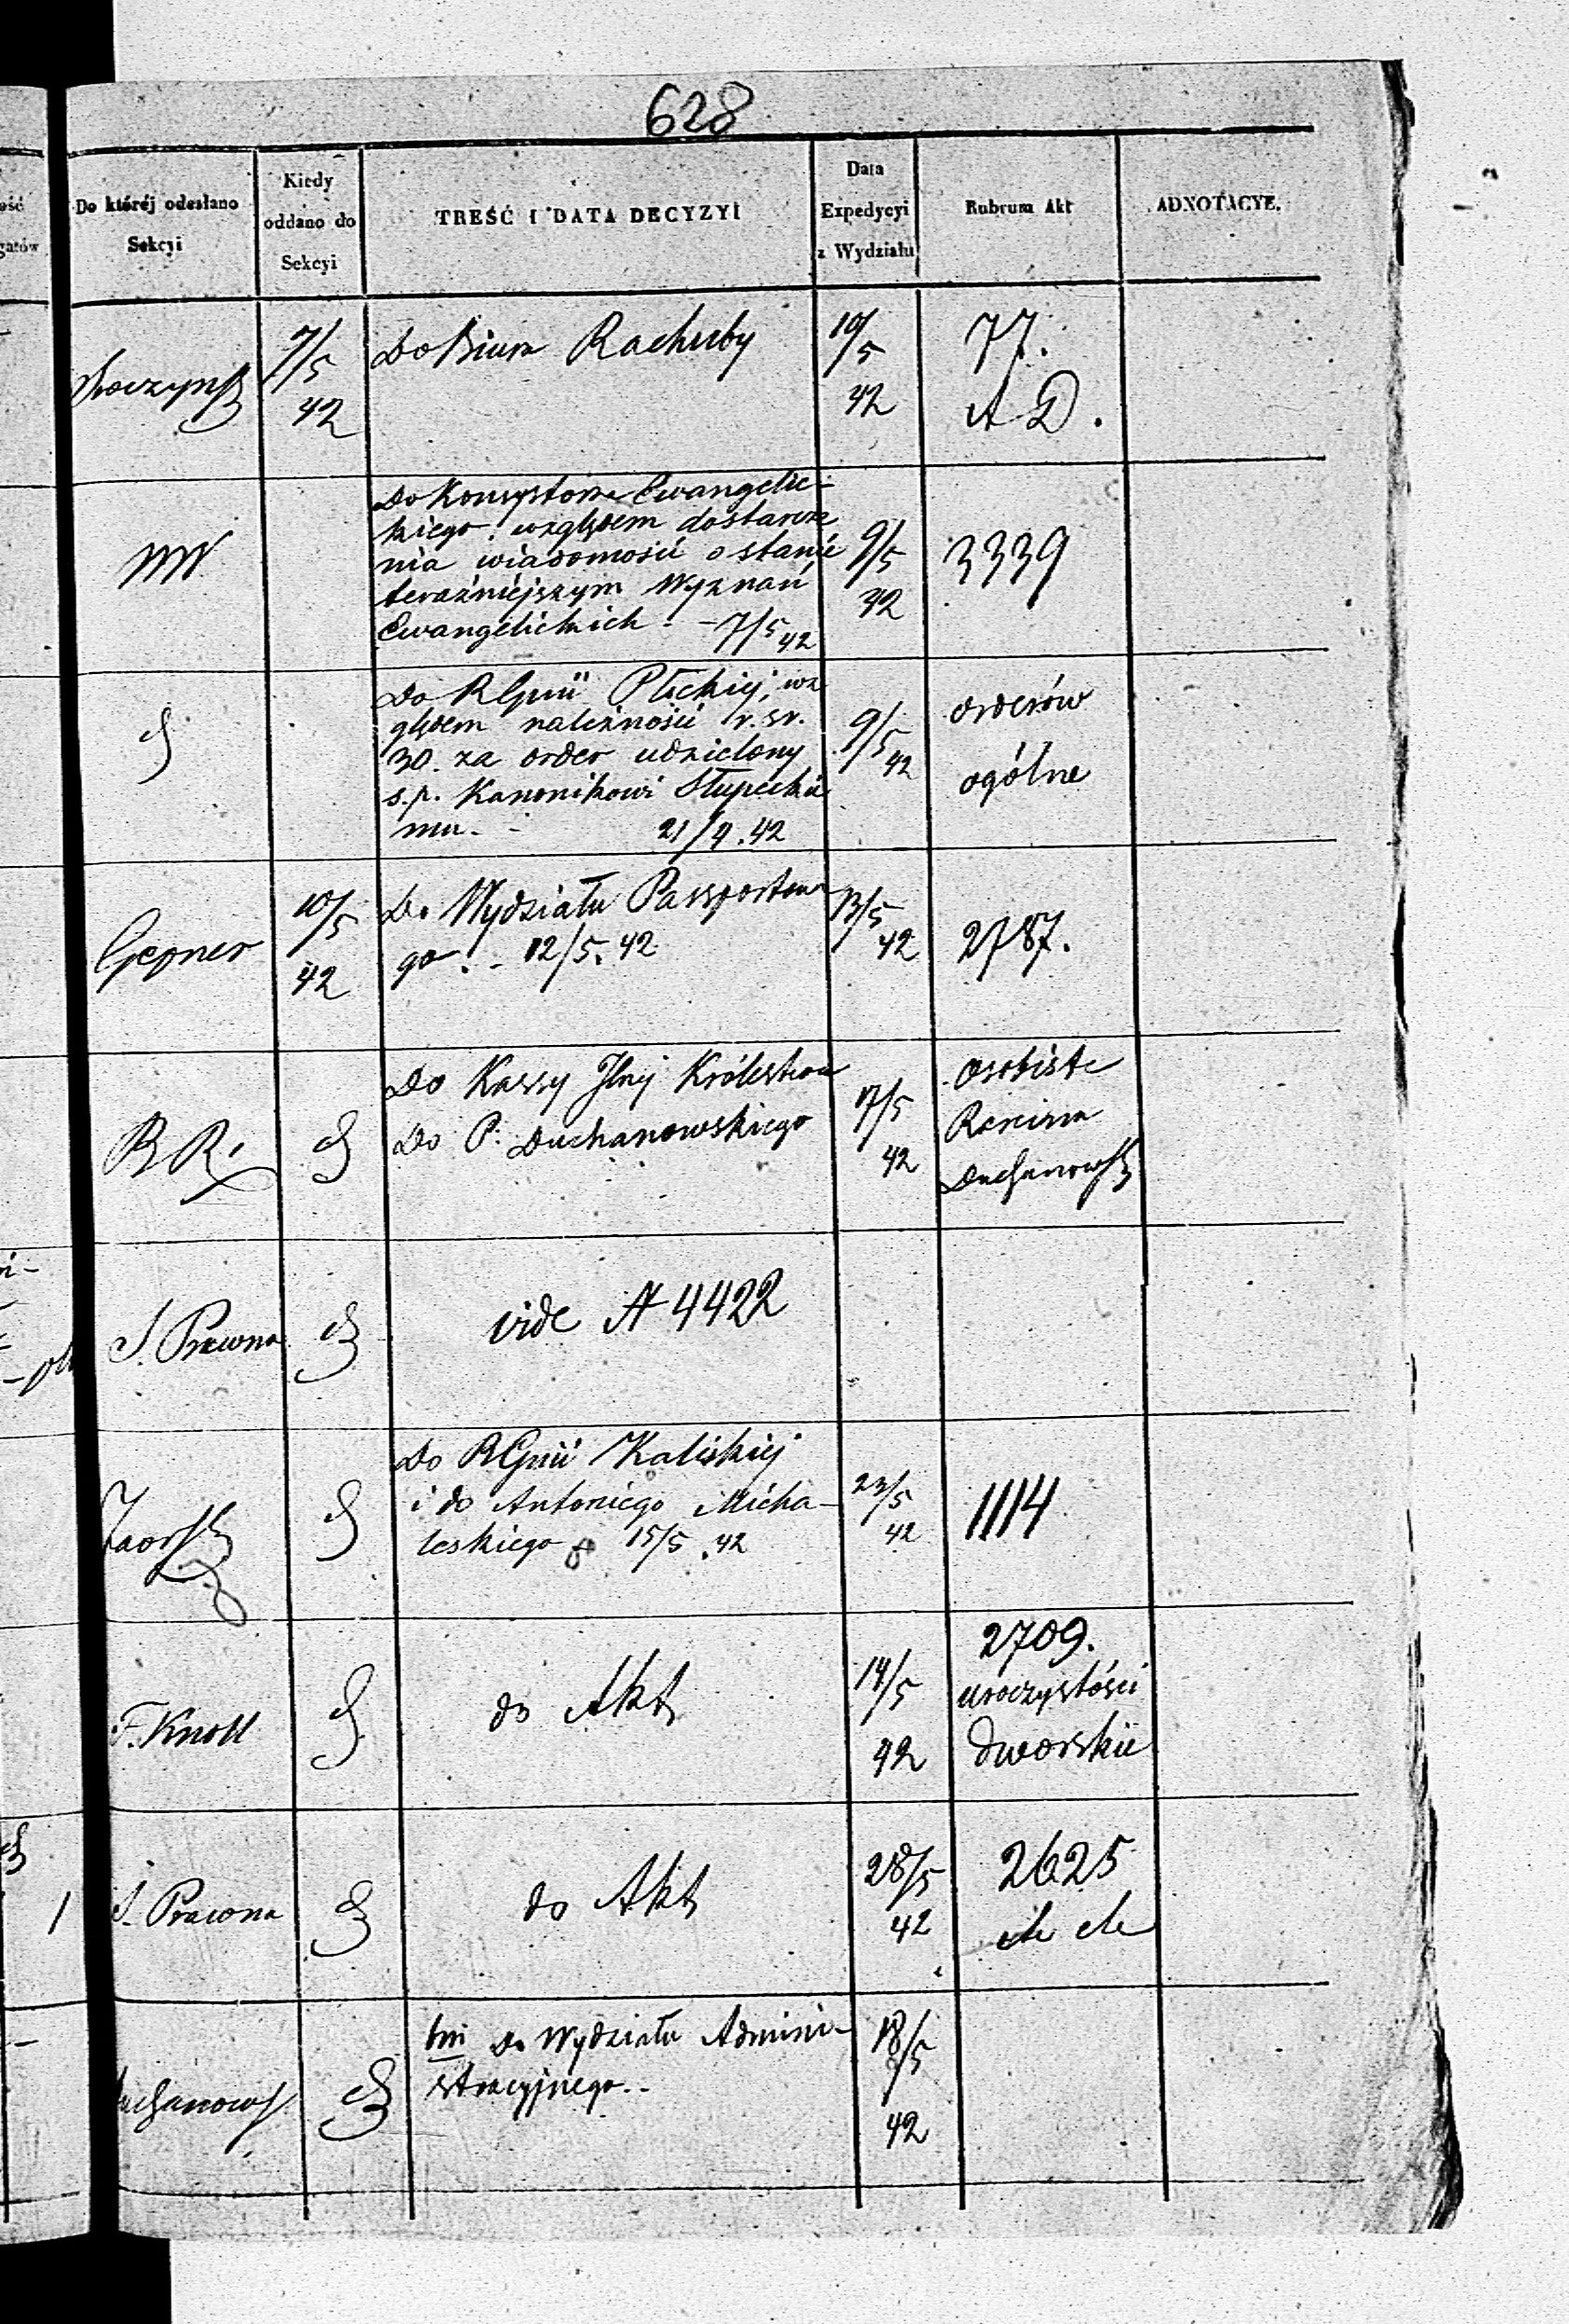 628
Do któréj odesłano
Sekcyi
Kiedy
oddano do
Sekcyi
TREŚĆ I DATA DECYZYI
Data
Expedycyi
z Wydziału
Rubrum Akt
ADNOTACYE.
7/5
42
Do Biura Rachuby
10/5
42
77.
A D.
Do Konsystorza Ewangelic-
kiego względem dostarcze
nia wiadomości o stanie
teraźniejszym Wyznań
Ewangelickich - 7/5 42
9/5
42
3339
Do RGnii Płckiej, wz
ględem należności r. sr.
30. za order udzielony
s.p. Kanonikowi Słupeckie
mu - 21/4.42
9/5
42
orderów
ogólne
Gepner
10/5
42
Do Wydziału Passportowe
go. - 12/5.42
13/5
42
2787.
B R.
Do Kassy Jlnej Królestwa
Do P. Duchanowskiego
17/5
42
osobiste
Duchanowsk
S. Prawna
vide N 4422
Do RGnii Kaliskiej
i do Antoniego Micha-
leskiego 15/5.42
23/5
42
1114
F. Knoll
do Akt
14/5
42
2709.
uroczystości
dworskie
S. Prawna
do Akt
28/5
42
2625
bm do Wydziału Admini-
stracyjnego..
18/5
42